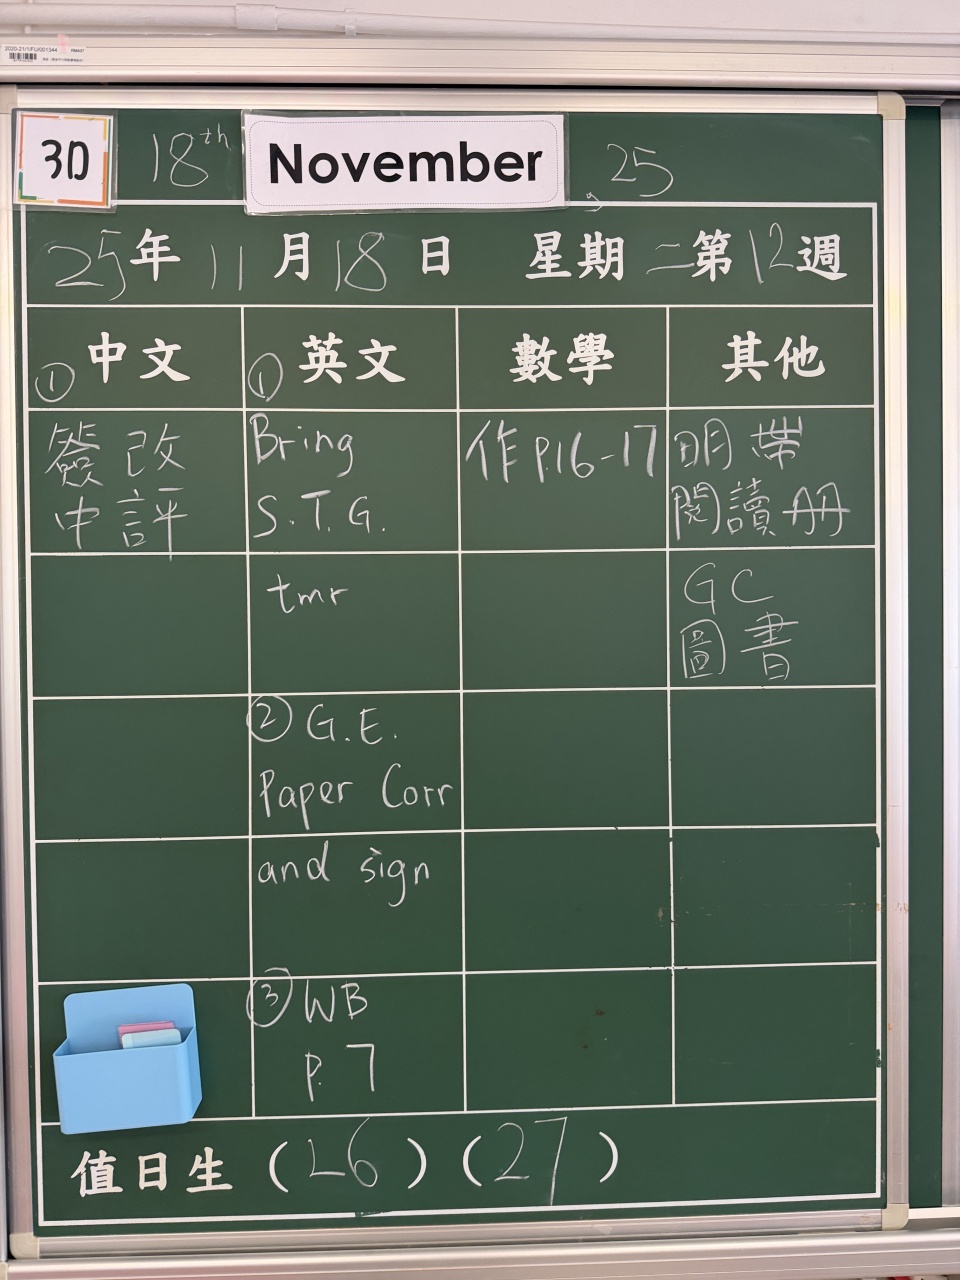 2020-21/1/FU/001344
3D 18th November 25
25年 11月18日 星期二第12週
①中文 ①英文 數學 其他
簽改
中評
Bring
S.T.G.
tmr
②G.E.
Paper Corr
and sign
③WB
p.7
作P.16-17
明帶
閱讀册
GC
圖書
值日生(26)(27)